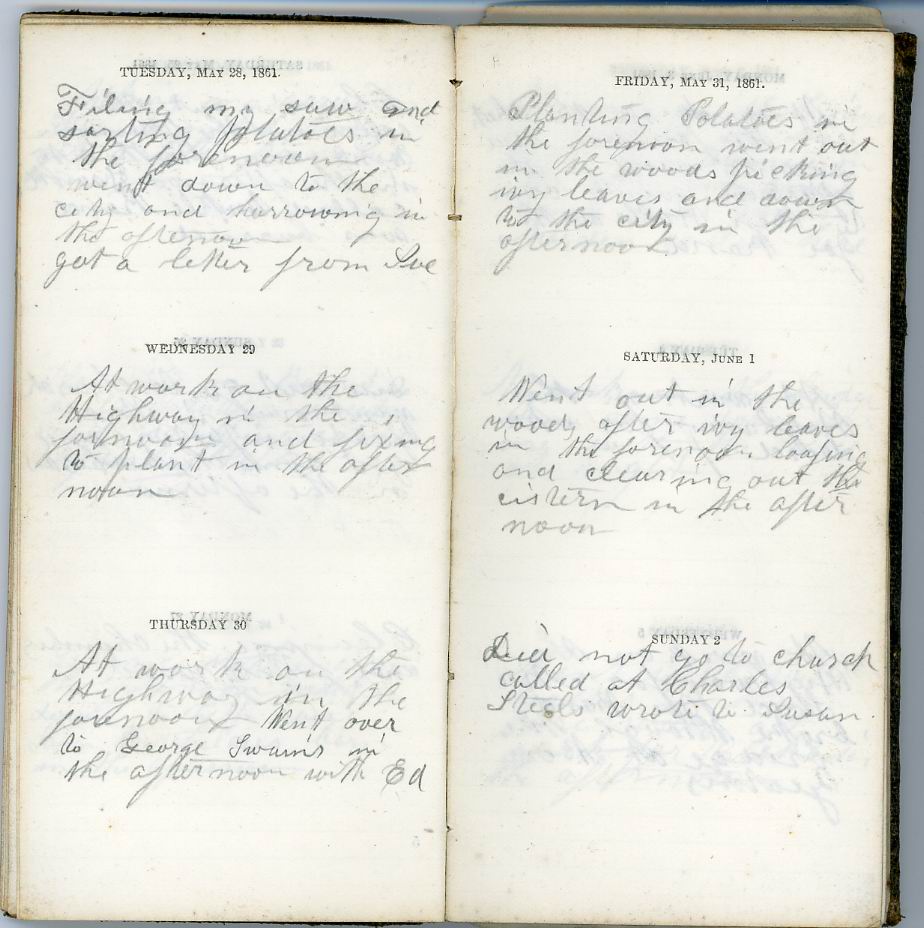 TUESDAY, MAY 28, 1861.
Filing my saw and
sorting potatoes in
the forenoon
went down to the
city and harrowing in
the afternoon
got a letter from
WEDNESDAY 29
At work on the
Highway in the
forenoon and fixing
to plant in the after
noon
THURSDAY 30
At work on the
Highway in the
forenoon Went over
to George Swains in
the afternoon with Ed
FRIDAY, MAY 31, 1861.
Planting Potatoes in
the forenoon went out
in the woods picking
ivy leaves and down
to the city in the
afternoon
SATURDAY, JUNE 1
Went out in the
woods after ivy leaves
in the forenoon loafing
and clearing out the
cistern in the after
noon
SUNDAY 2
Did not go to church
called at Charles
Steels wrote to Susan